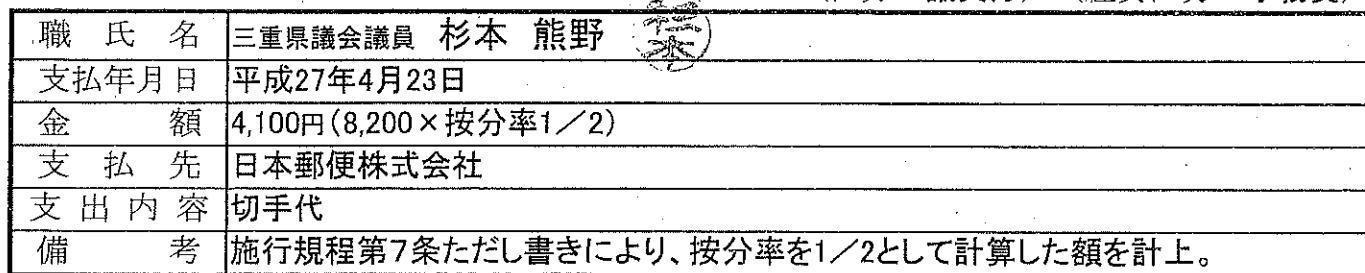 職氏名 三重県議会議員 杉本 熊野 杉本
支払年月日 平成27年4月23日
金額 4,100円(8,200×按分率1/2)
支払先 日本郵便株式会社
支出内容 切手代
備考 施行規程第7条ただし書きにより、按分率を1/2として計算した額を計上。